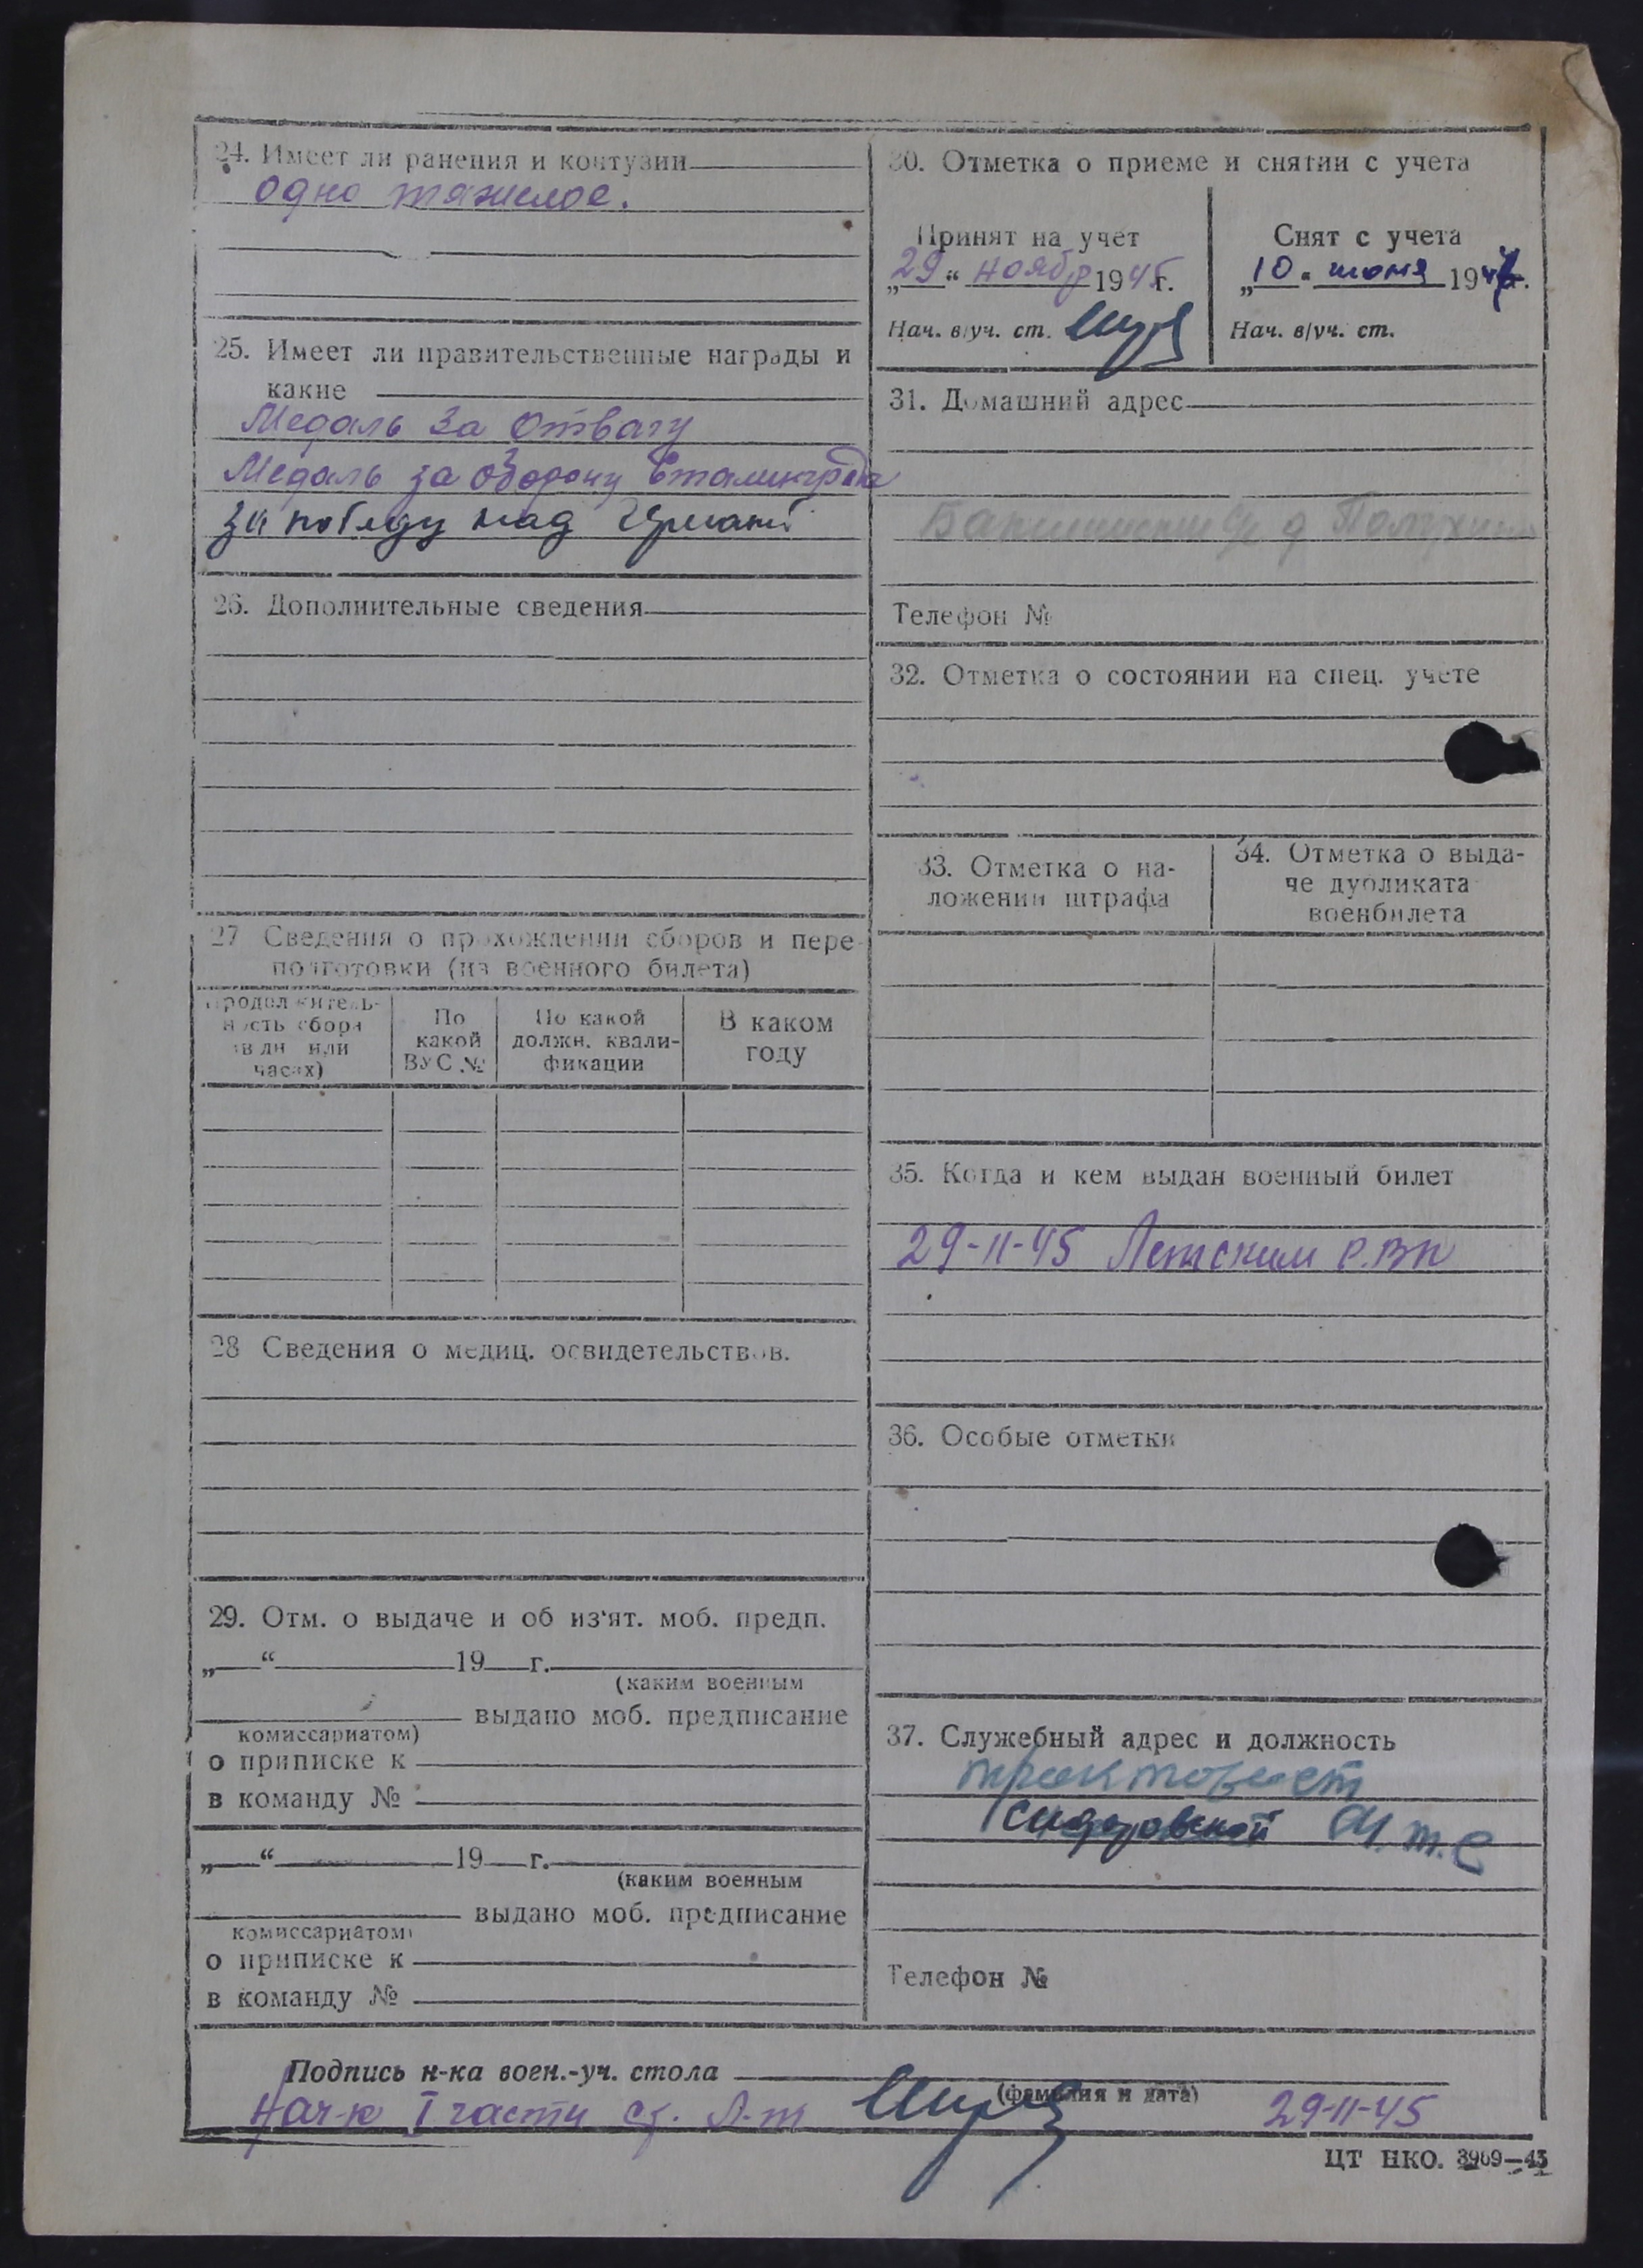 24. Имеет ли ранения и контузии
одно тяжелое.
25. Имеет ли правительственные награды и
какие
Медаль За Отвагу
Медаль за оборону Сталинграда
За победу над
26. Дополнительные сведения
27 Сведения о прохождении сборов и пере-
подготовки (из военного билета)
Продолжитель-
ность сбора
(в дн или
часах)
По
какой
ВУС №
По какой
должн. квали-
фикации
В каком
году
28 Сведения о медиц. освидетельствов.
29. Отм. о выдаче и об из'ят. моб. предп.
„ “ 19 г.
(каким военным
выдано моб. предписание
комиссариатом)
о приписке к
в команду №
„ “ 19 г.
(каким военным
выдано моб. предписание
комиссариатом)
о приписке к
в команду №
30. Отметка о приеме и снятии с учета
Принят на учет
„29“ ноябр 1945г.
Нач. в/уч. ст.
Снят с учета
„10“ июня 194 г.
Нач. в/уч. ст.
31. Домашний адрес
Телефон №
32. Отметка о состоянии на спец. учете
33. Отметка о на-
ложении штрафа
34. Отметка о выда-
че дубликата
военбилета
35. Когда и кем выдан военный билет
29-11-45 Летским РВК
36. Особые отметки
37. Служебный адрес и должность
тракторист
Сидоровской М.т.с
Телефон №
Подпись н-ка воен.-уч. стола
(фамилия и дата)
Нач-к I части ст. л-т 29-11-45
ЦТ НКО. 3969—43